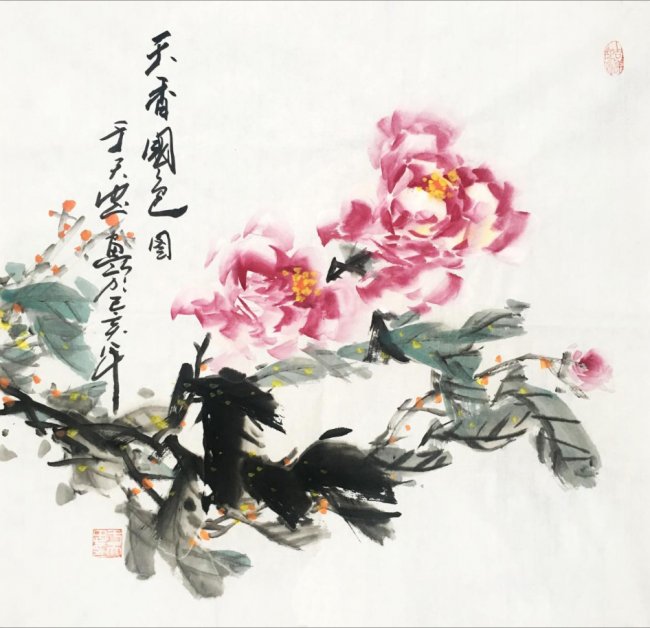 天香國色图
于天忠画於己亥年